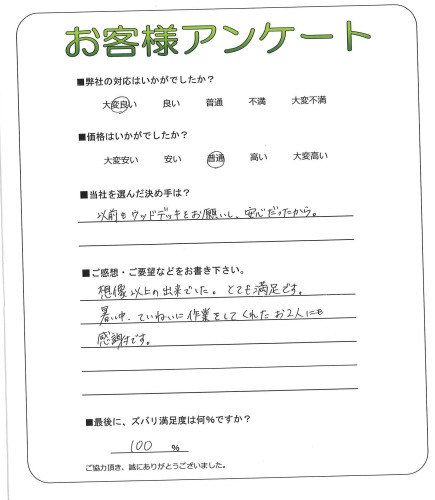 お客様アンケート
■弊社の対応はいかがでしたか?
大変良い 良い 普通 不満 大変不満
■価格はいかがでしたか?
大変安い 安い 普通 高い 大変高い
■当社を選んだ決め手は?
以前もウッドデッキをお願いし、安心だったから。
■ご感想・ご要望などをお書き下さい。
想像以上の出来でした。とても満足です。
暑い中、ていねいに作業をしてくれたお2人にも
感謝です。
■最後に、ズバリ満足度は何%ですか?
100 %
ご協力頂き、誠にありがとうございました。